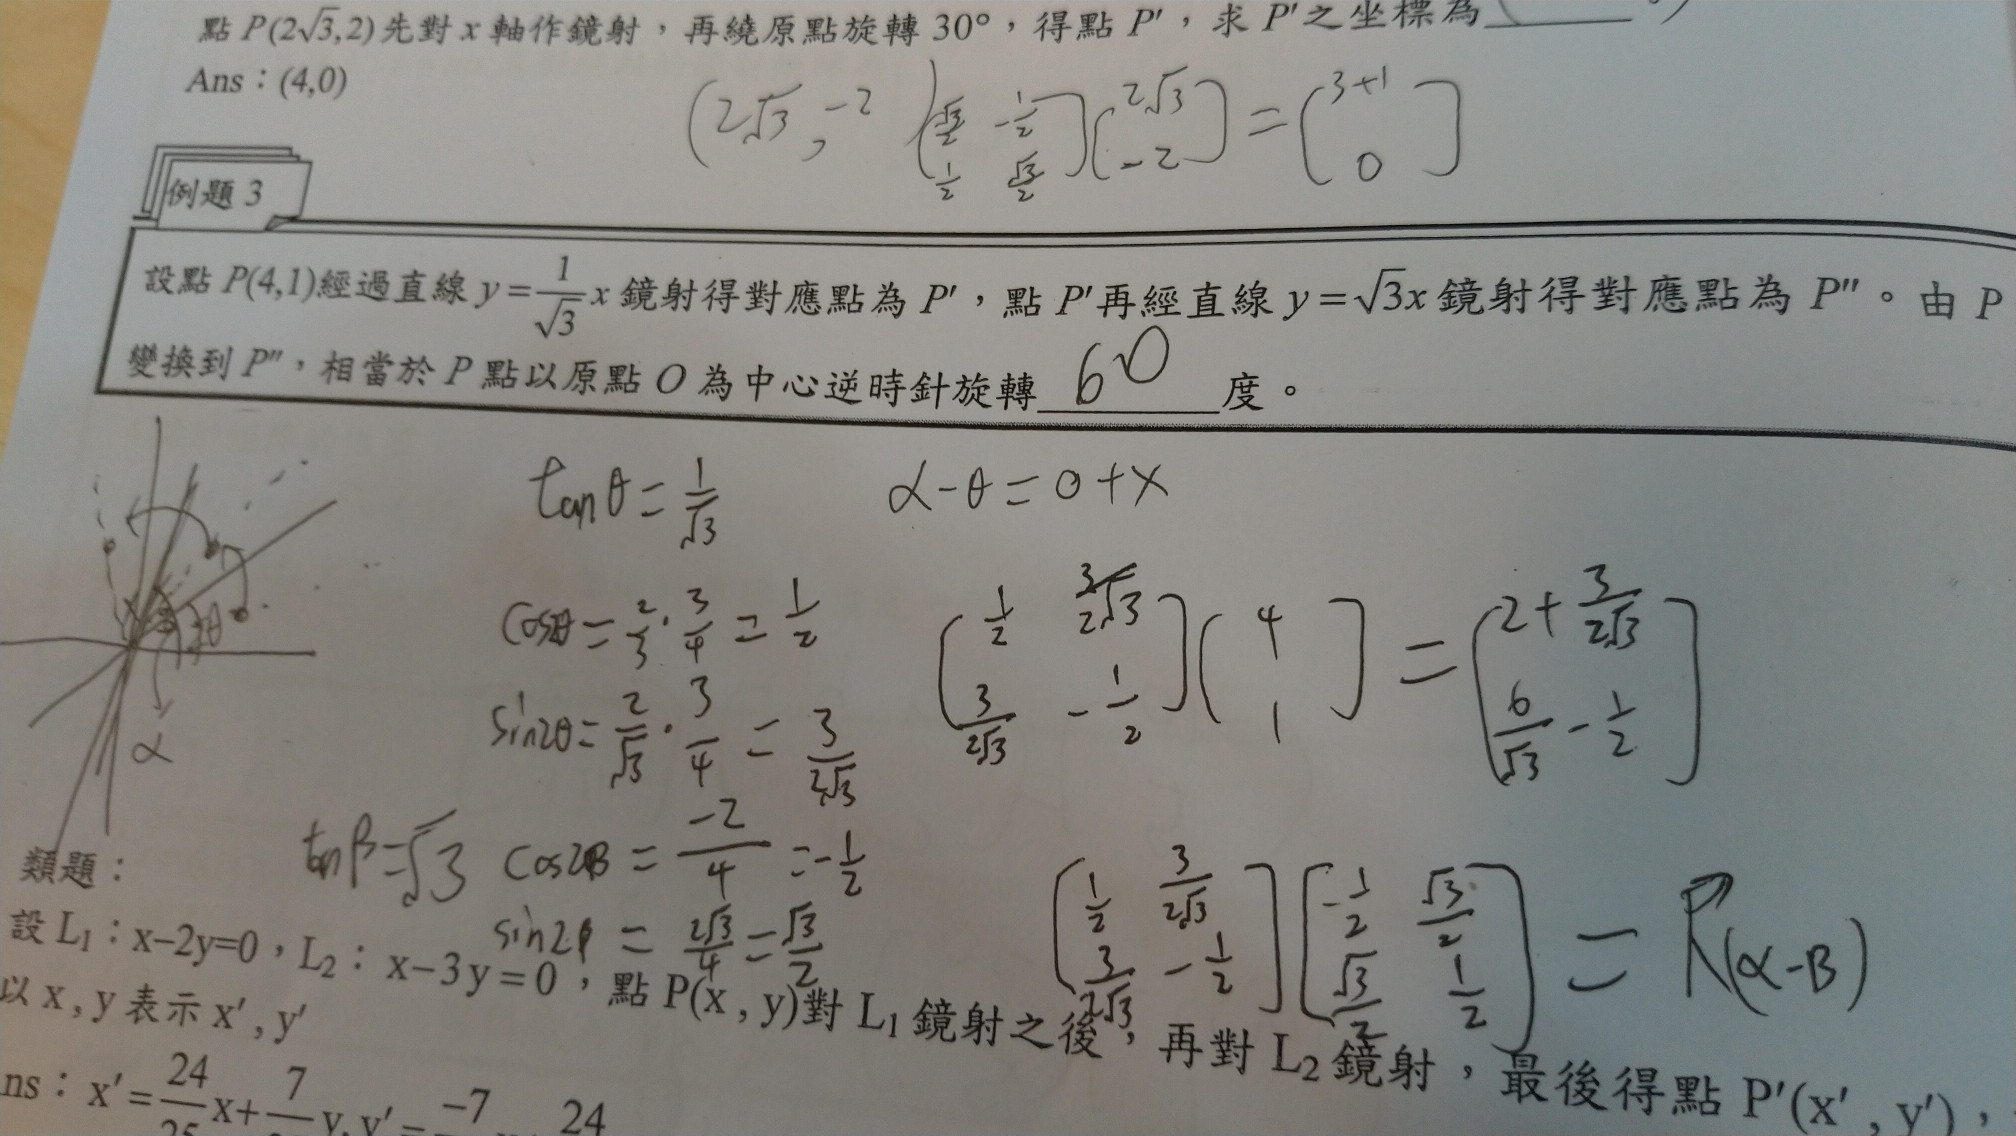 點 P(2√3,2)先對 x 軸作鏡射,再繞原點旋轉 30°,得點 P′,求 P′之坐標為______。)
Ans:(4,0)
(2√3, -2) [√3/2 -1/2; 1/2 √3/2] [2√3; -2] = [3+1; 0]
例題 3
設點 P(4,1)經過直線 y=1/√3 x 鏡射得對應點為 P′,點 P′再經直線 y=√3x 鏡射得對應點為 P″。由 P
變換到 P″,相當於 P 點以原點 O 為中心逆時針旋轉 60 度。
tanθ = 1/√3 α-θ = θ+x
cosθ = 2/3 · 3/4 = 1/2
[1/2 3/2√3; 3/2√3 -1/2] [4; 1] = [2+3/2√3; 6/√3 - 1/2]
sin2θ = 2/√3 · 3/4 = 3/2√3
α
tanβ=√3 cos2β = -2/4 = -1/2
sin2β = 2√3/4 = √3/2
[1/2 3/2√3; 3/2√3 -1/2] [-1/2 √3/2; √3/2 1/2] = R(α-β)
類題:
設 L₁:x−2y=0,L₂:x−3y=0,點 P(x , y)對 L₁ 鏡射之後,再對 L₂ 鏡射,最後得點 P′(x′ , y′),
以 x , y 表示 x′ , y′
ns:x′=24/25 x+7/ y, y′=−7 24